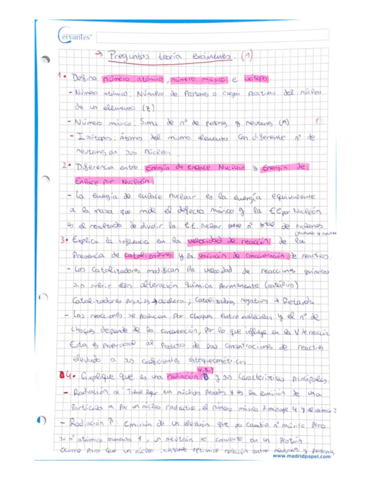 Cervantes
→ Preguntas teoría exámenes (1)
1• Defina número atómico, número másico e isótopo
- Número atómico. Número de Protones o carga positiva del núcleo
de un elemento (Z)
- Número másico. Suma de nº de protones y neutrones (A)
- Isótopos. Átomos del mismo elemento con diferente nº de
neutrones en su núcleo.
2• Diferencia entre Energía de enlace Nuclear y Energía de
Enlace por Nucleón
- La energía de enlace nuclear es la energía equivalente
a la masa que mide el defecto másico y la EE por Nucleón
es el resultado de dividir la E.E. nuclear entre el total de
3• Explica la influencia en la velocidad de reacción de la
Presencia de catalizadores y la variación de concentración de reactivos
- Los catalizadores modifican la velocidad de reacciones químicas
sin sufrir una alteración química permanente
Catalizadores Aceleradores, Catalizadores negativos → Retarda
- Las reacciones se producen por choques entre moléculas y el nº de
choques depende de la concentración, por lo que influye en la V reacción
Esta es proporcional al Producto de las concentraciones de reactivos
elevado a sus coeficientes estequiométricos
4• Explique que es una radiación y sus características principales
- Radiación α:
Partícula α por un núcleo radiactivo, el número másico 4 y
- Radiación β: Emisión de un electrón que no cambia nº másico pero
su nº atómico aumenta 1, un neutrón se convierte en un Protón
www.madridpapel.com